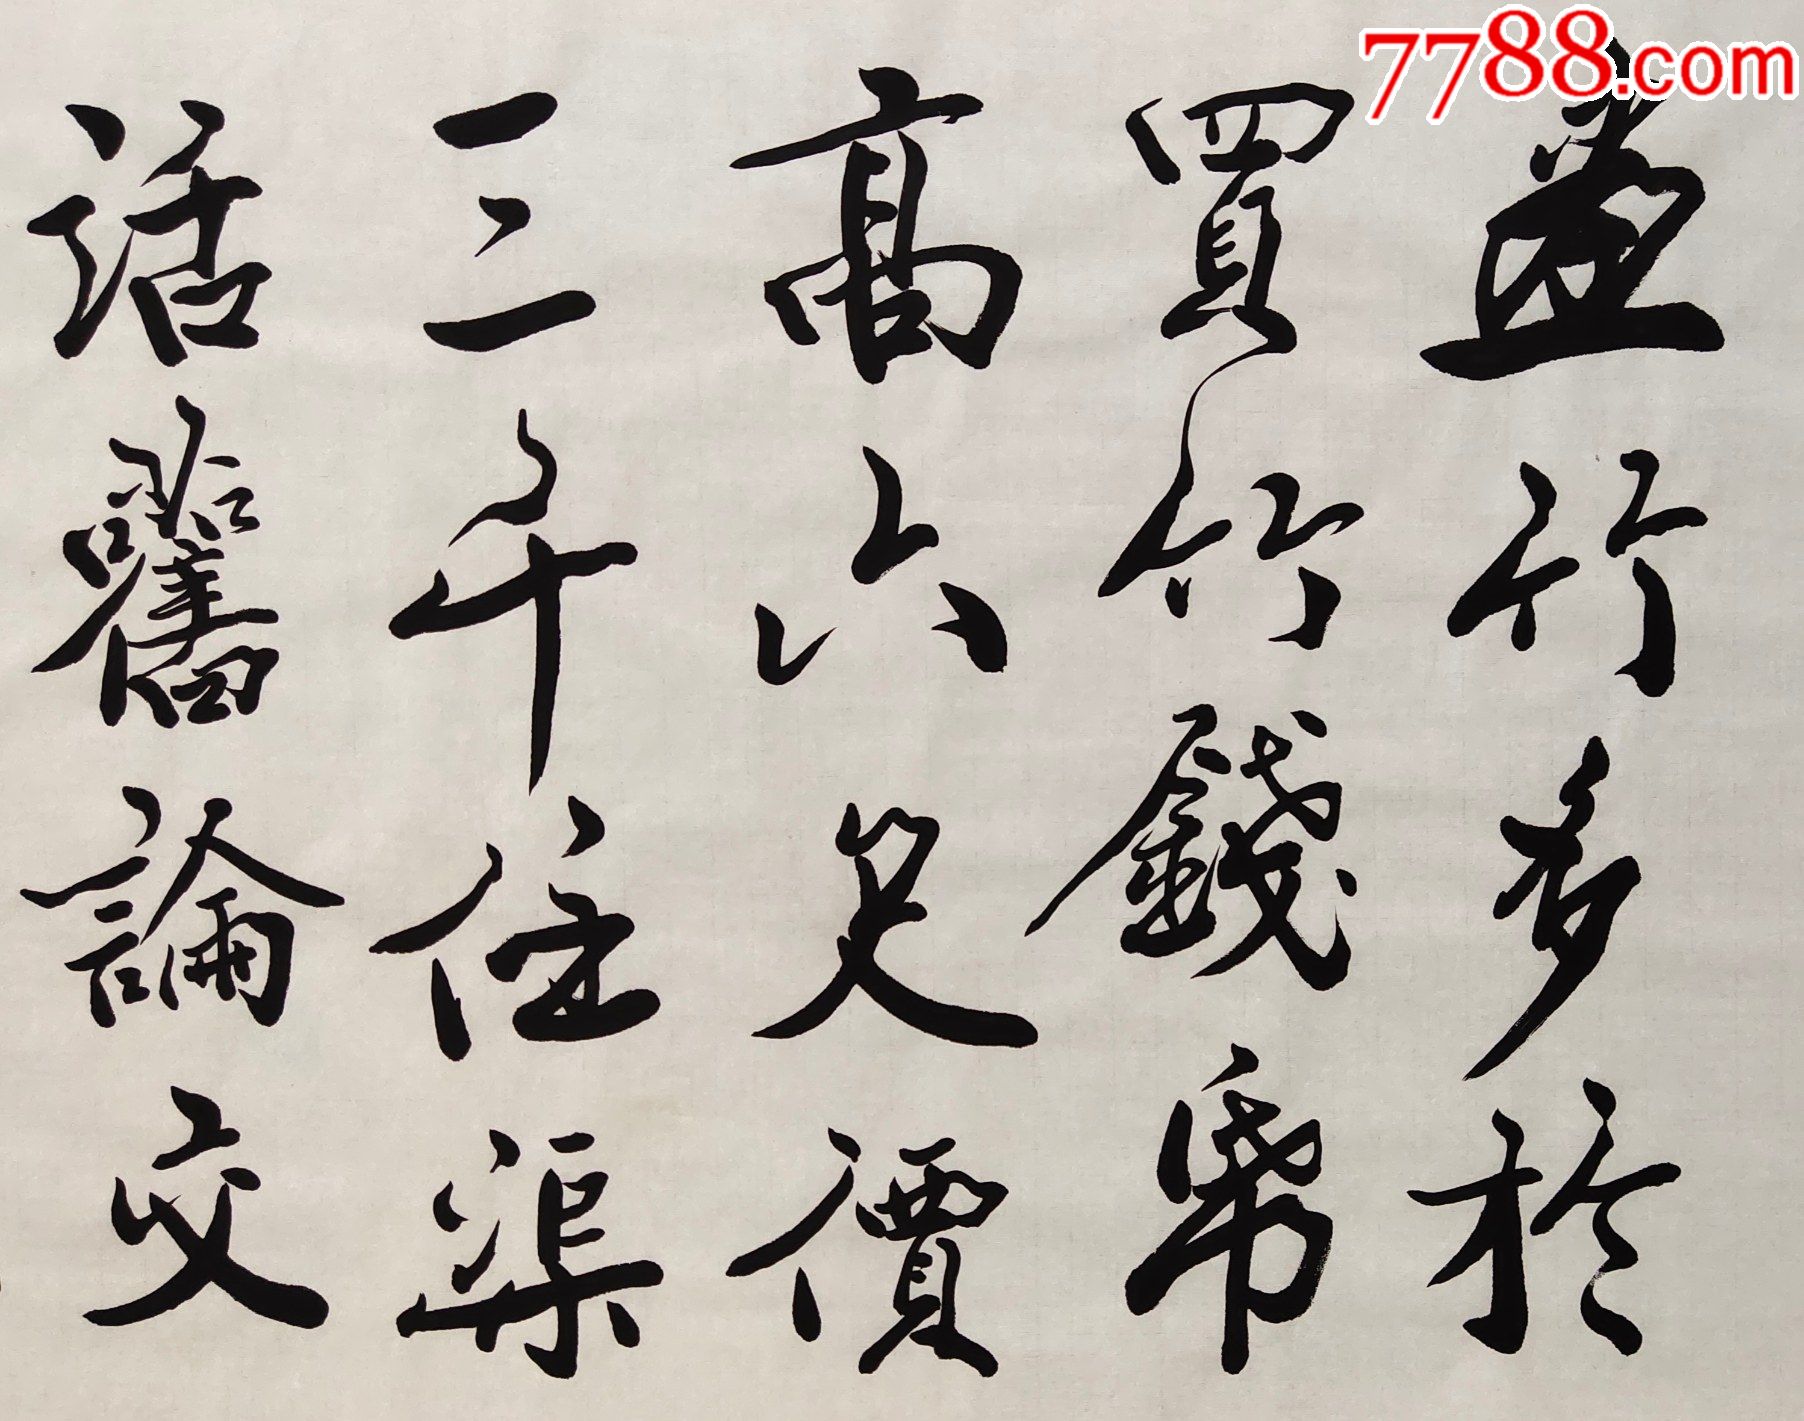 7788.com
畫竹多於
買竹錢帋
高六尺價
三千任渠
話舊論交